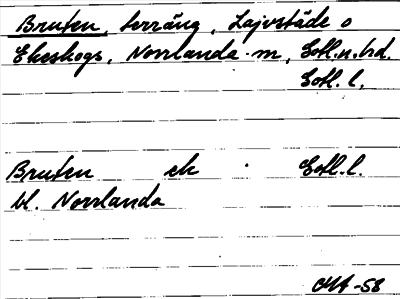 Bruten, terräng, Lajvstäde o
Ekeskogs, Norrlanda · m, Gotl.n.hd.
Gotl. l.
Bruten ek · Gotl.l.
bl. Norrlanda
-58